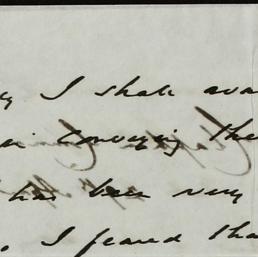 I shall ava
conveying the
has been very
, I feared tha